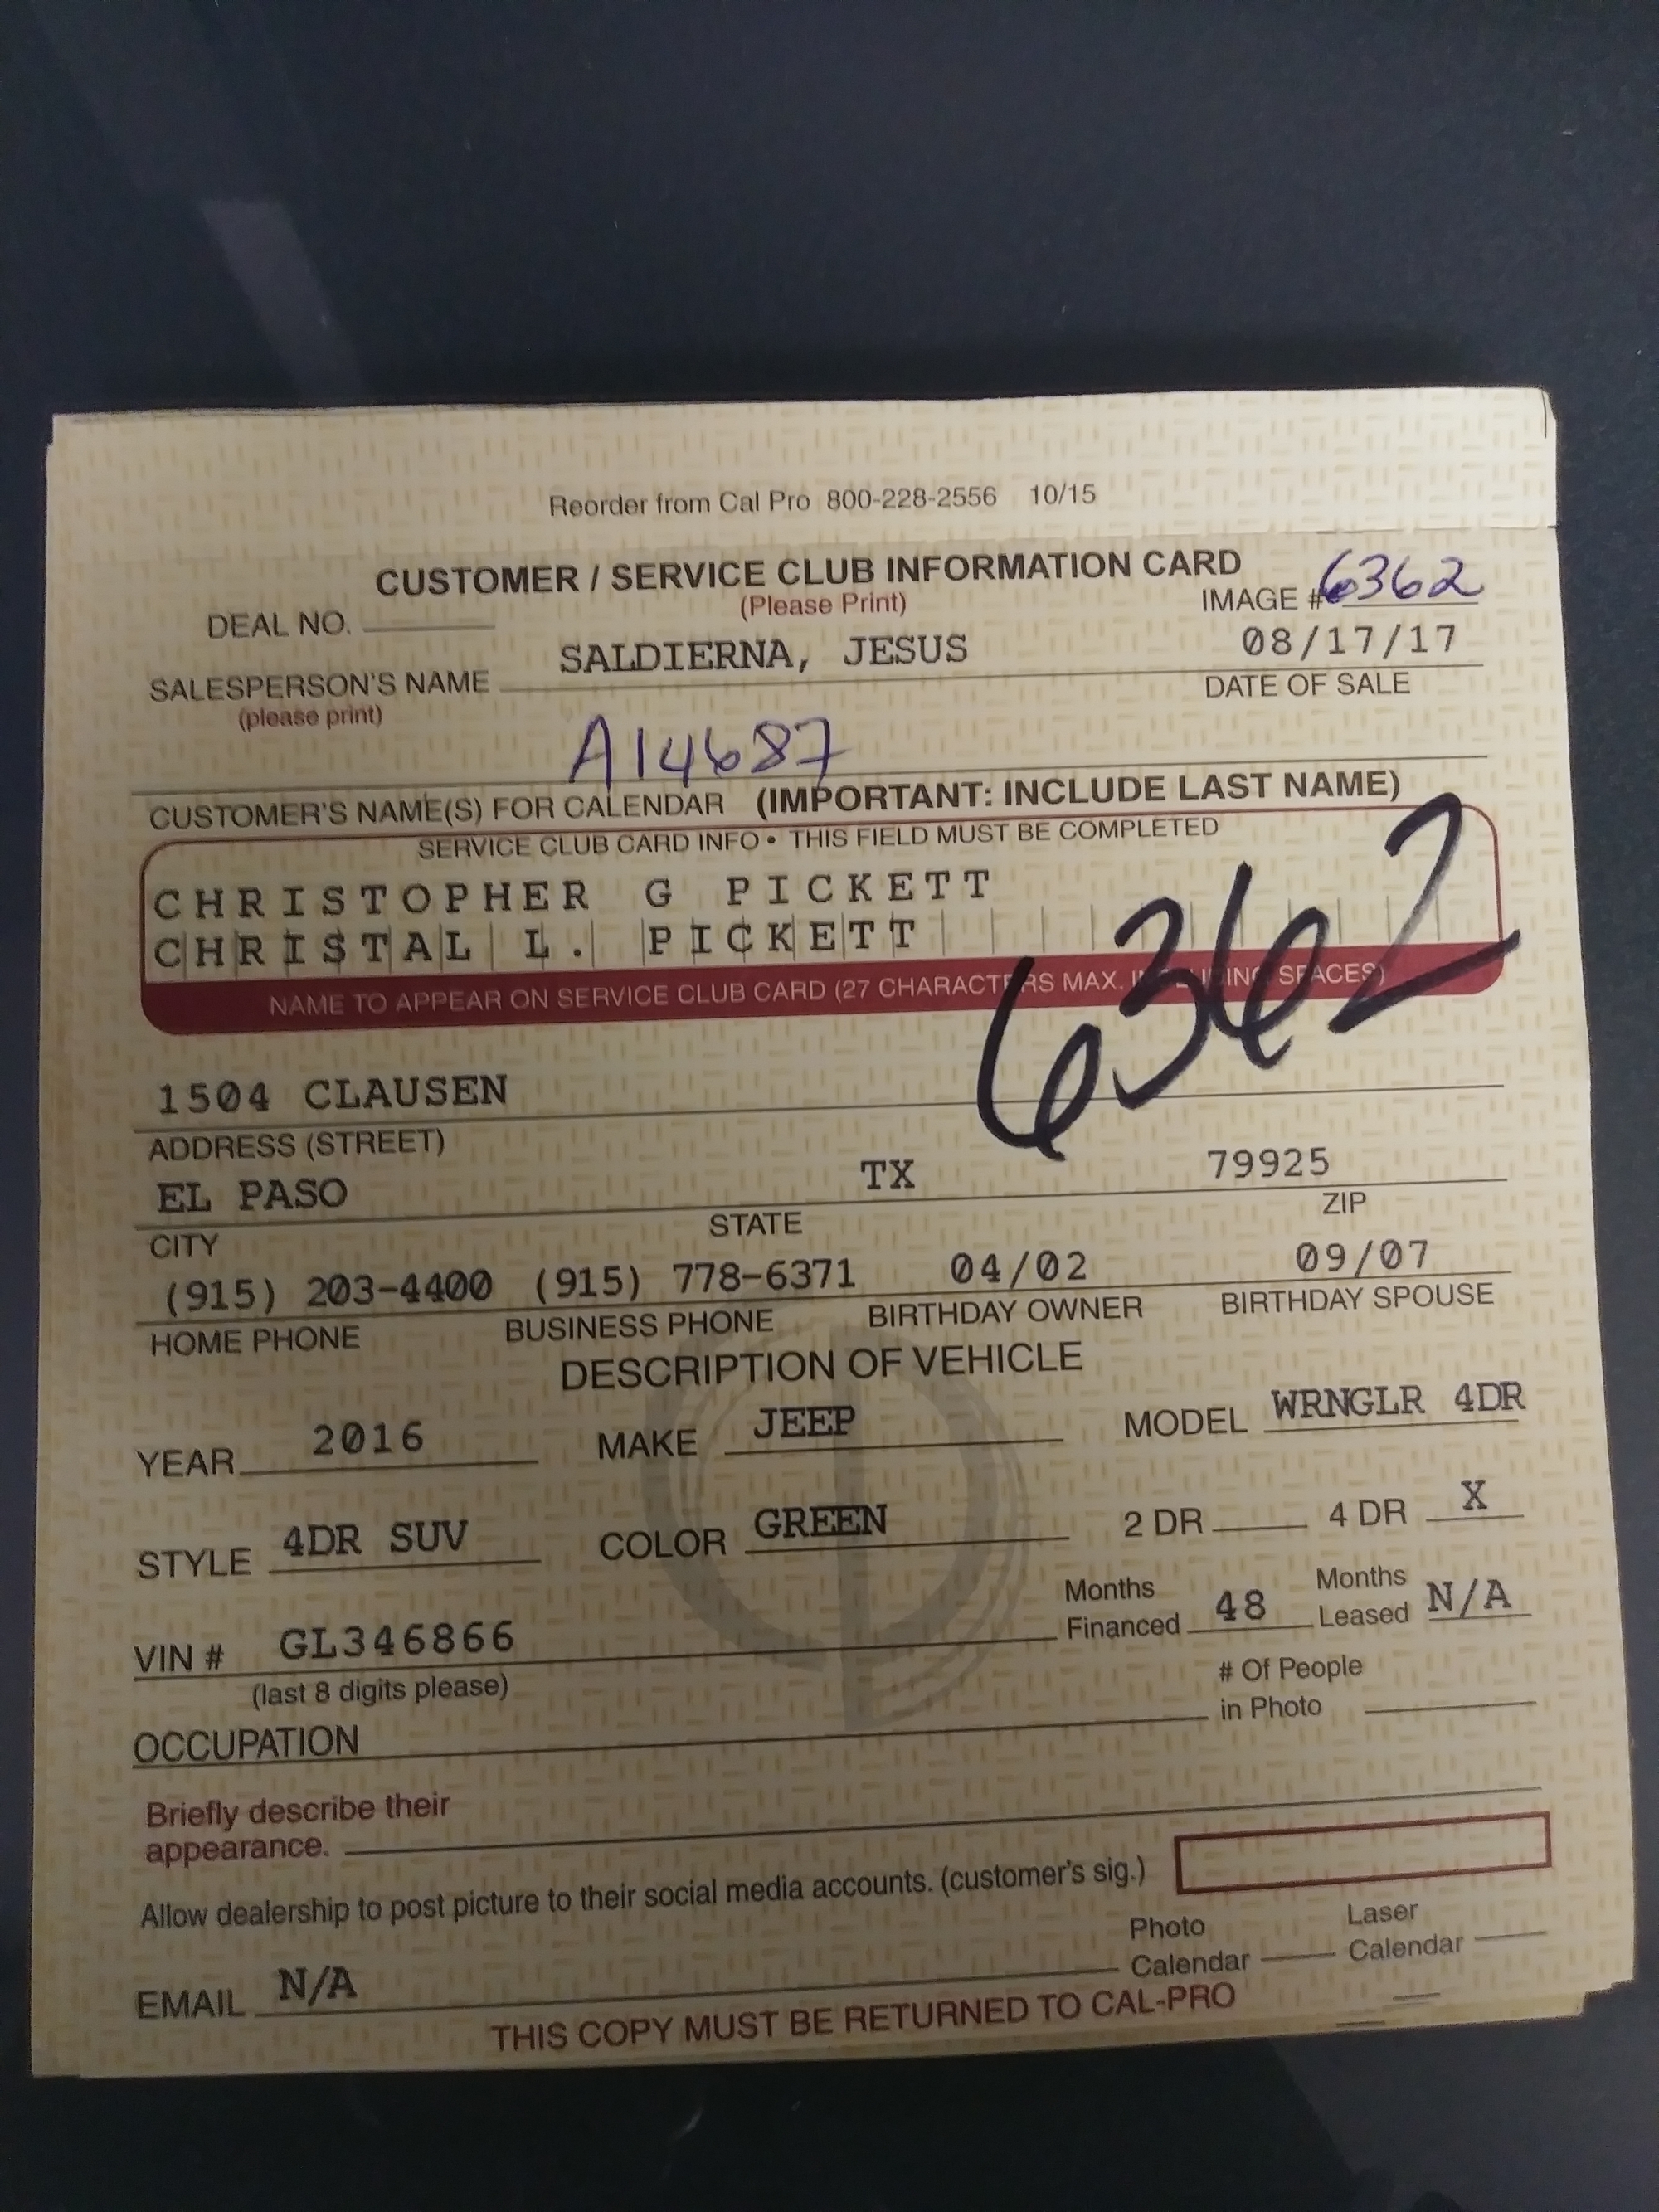 Reorder from Cal Pro 800-228-2556 10/15
CUSTOMER / SERVICE CLUB INFORMATION CARD
(Please Print)
IMAGE # 6362
DEAL NO.
SALESPERSON'S NAME SALDIERNA, JESUS 08/17/17
(please print) DATE OF SALE
A14687
CUSTOMER'S NAME(S) FOR CALENDAR (IMPORTANT: INCLUDE LAST NAME)
SERVICE CLUB CARD INFO • THIS FIELD MUST BE COMPLETED
CHRISTOPHER G PICKETT
CHRISTAL L. PICKETT
6362
NAME TO APPEAR ON SERVICE CLUB CARD (27 CHARACTERS MAX. INCLUDING SPACES)
1504 CLAUSEN
ADDRESS (STREET)
EL PASO TX 79925
CITY STATE ZIP
(915) 203-4400 (915) 778-6371 04/02 09/07
HOME PHONE BUSINESS PHONE BIRTHDAY OWNER BIRTHDAY SPOUSE
DESCRIPTION OF VEHICLE
YEAR 2016 MAKE JEEP MODEL WRNGLR 4DR
STYLE 4DR SUV COLOR GREEN 2 DR 4 DR X
VIN # GL346866 Months Financed 48 Months Leased N/A
(last 8 digits please) # Of People in Photo
OCCUPATION
Briefly describe their
appearance.
Allow dealership to post picture to their social media accounts. (customer's sig.)
EMAIL N/A Photo Calendar Laser Calendar
THIS COPY MUST BE RETURNED TO CAL-PRO